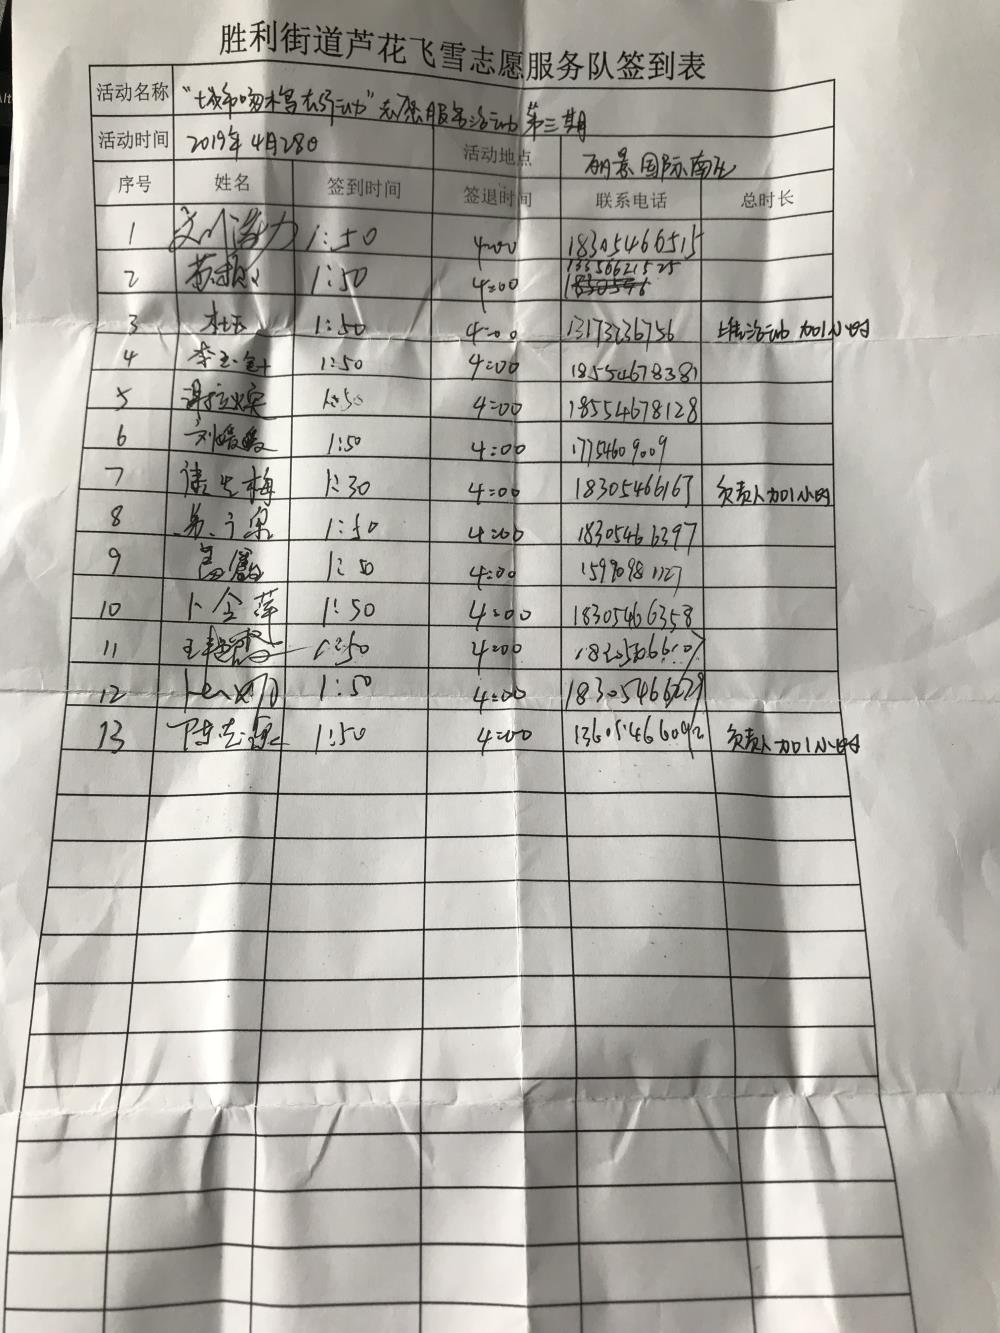 胜利街道芦花飞雪志愿服务队签到表
活动名称 "城市啄木鸟在行动"志愿服务活动第三期
活动时间 2019年4月28日 活动地点 丽景国际南区
序号 姓名 签到时间 签退时间 联系电话 总时长
1 1:50 4:00 18305466515
2 1:50 4:00 13356621525
3 杜玉 1:50 4:00 13173236756 上传活动加1小时
4 李玉 1:50 4:00 18554678381
5 1:50 4:00 18554678128
6 刘媛媛 1:50 4:00 17754609009
7 1:30 4:00 18305466167 负责人加1小时
8 1:50 4:00 18305466397
9 1:50 4:00 15990981127
10 卜令萍 1:50 4:00 18305466358
11 王 1:50 4:00
12 1:50 4:00 18305466279
13 陈志强 1:50 4:00 13605466092 负责人加1小时